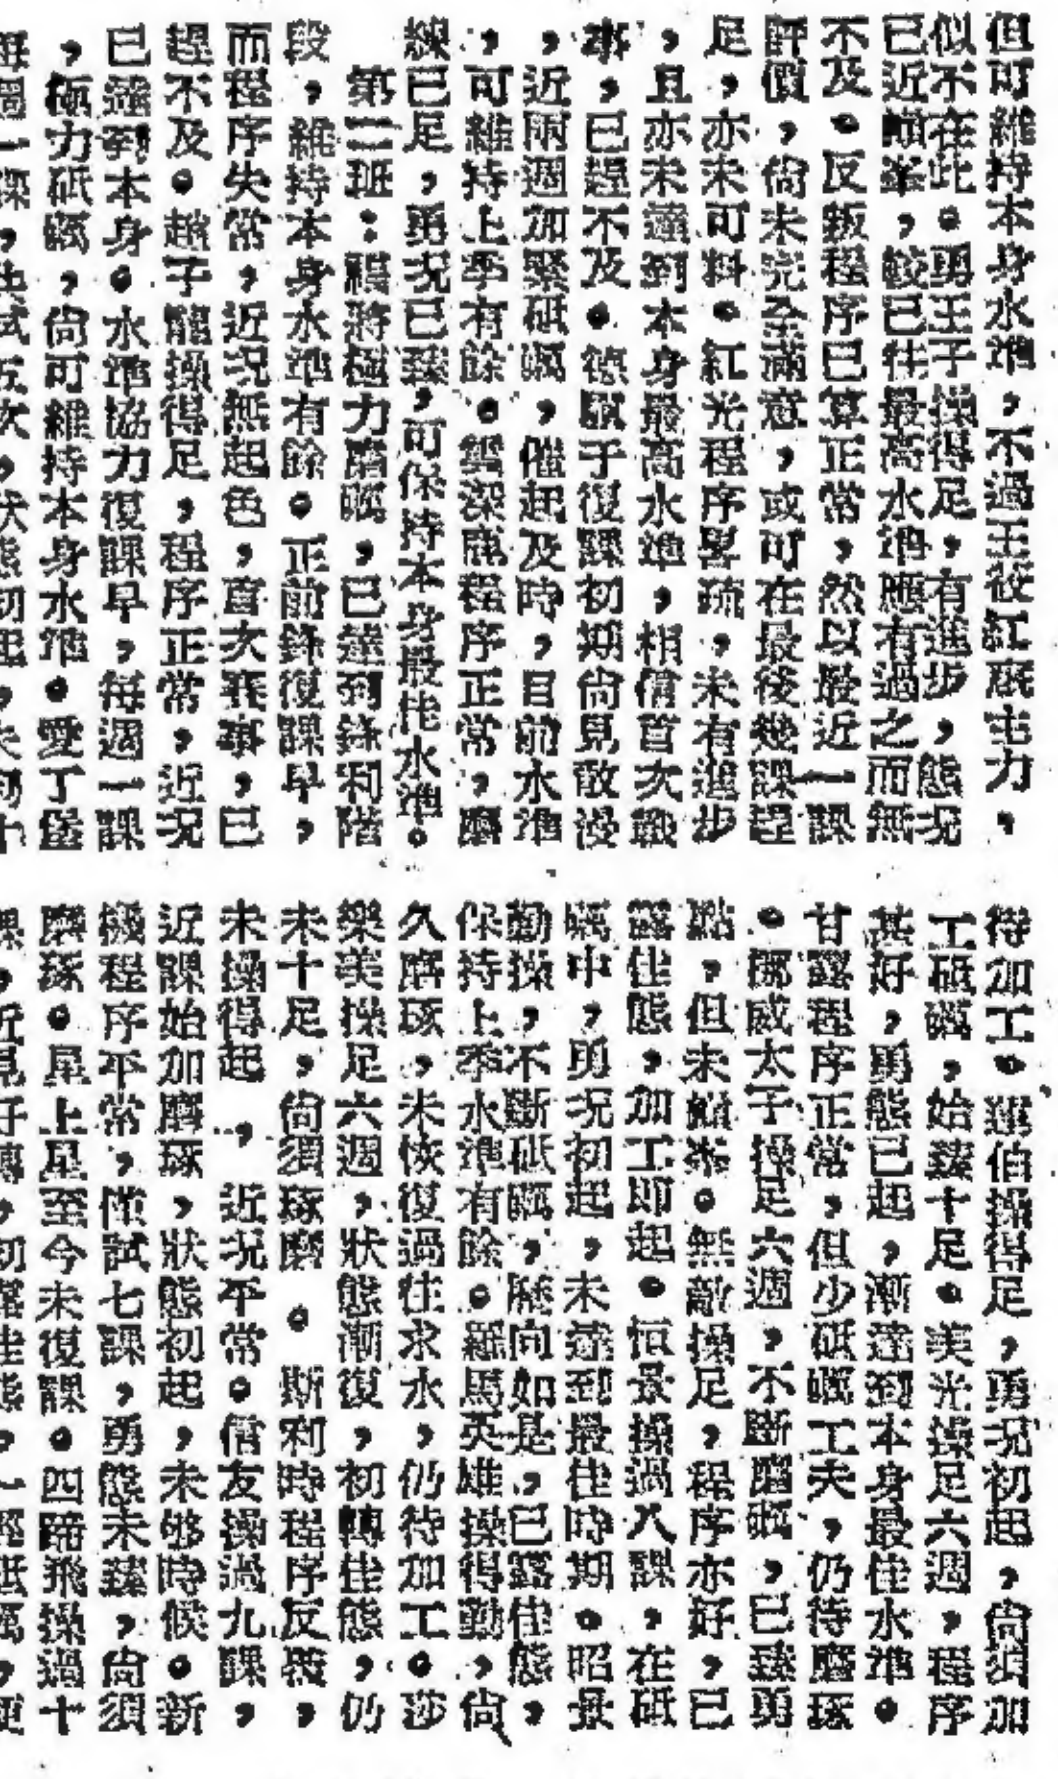 但可維持本身水準，不過王後紅旣主力，
似不在此。勇王子操得足，有進步，態況
已近顚峯，較已往最高水準應有過之而無
不及。反叛程序已算正常，然以最近一課
評價，尙未完全滿意，或可在最後幾課趕
足，亦未可料。紅光程序畧疏，未有進步
，且亦未達到本身最高水準，相信首次戰
事，已趕不及。德驥于復課初期尙見散漫
，近兩週加緊砥礪，催起及時，目前水準
，可維持上季有餘。雙深鹿程序正常，磨
練已足，勇況已臻，可保持本身最佳水準。
第二班：福將極力磨礪，已達到鋒利階
段，維持本身水準有餘。正前鋒復課早，
而程序失常，近況無起色，首次賽事，已
趕不及。趙子龍操得足，程序正常，近況
已達到本身。水準協力復課早，每週一課
，極力砥礪，尙可維持本身水準。愛丁堡
每週一課，
待加工。連伯操得足，勇況初起，尙須加
工砥礪，始臻十足。美光操足六週，程序
甚好，勇態已起，漸達到本身最佳水準。
甘露程序正常，但少砥礪工夫，仍待磨琢
。挪威太子操足六週，不斷磨礪，已臻勇
點，但未顚峯。無敵操足，程序亦好，已
露佳態，加工即起。恒景操過八課，在砥
礪中，勇況初起，未達到最佳時期。昭景
勤操，不斷砥礪，歷向如是，已露佳態，
保持上季水準有餘。羅馬英雄操得勤，尙
久磨琢，未恢復過往求水，仍待加工。莎
樂美操足六週，狀態漸復，初轉佳態，仍
未十足，尙須琢磨。斯利時程序反覆，
未操得起，近況平常。信友操過九課，
近課始加磨琢，狀態初起，未够時候。新
機程序平常，僅試七課，勇態未臻，尙須
磨琢。星上星至今未復課。四蹄飛操過十